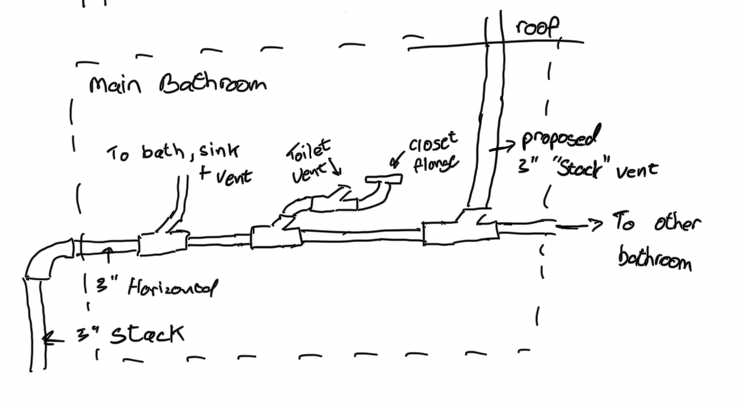 roof
Main Bathroom
To bath, sink
+ vent
Toilet
vent
closet
flange
proposed
3" "Stack" vent
To other
bathroom
3" Horizontal
3" Stack